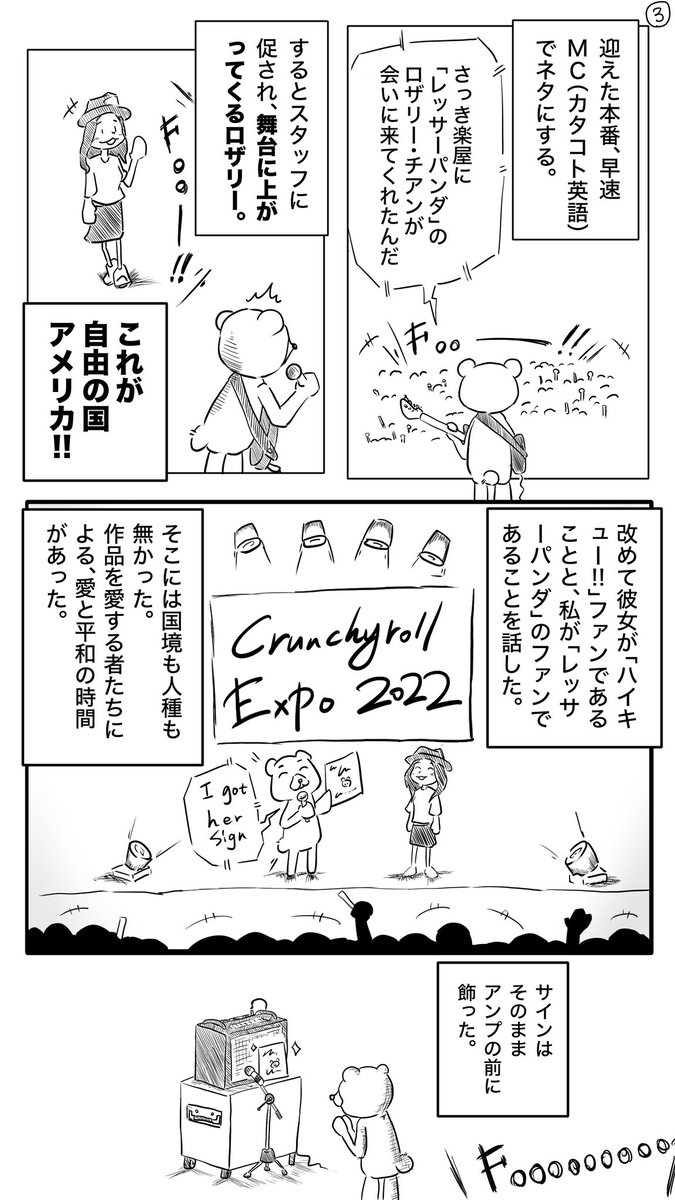 3
迎えた本番、早速
MC(カタコト英語)
でネタにする。
さっき楽屋に
「レッサーパンダ」の
ロザリー・チアンが
会いに来てくれたんだ
Foo ー !!
するとスタッフに
促され、舞台に上が
ってくるロザリー。
Fooー!!
これが
自由の国
アメリカ!!
改めて彼女が「ハイキ
ュー!!」ファンである
ことと、私が「レッサ
ーパンダ」のファンで
あることを話した。
Crunchyroll
Expo 2022
I got
her
sign
そこには国境も人種も
無かった。
作品を愛する者たちに
よる、愛と平和の時間
があった。
サインは
そのまま
アンプの前に
飾った。
Foooooooooo